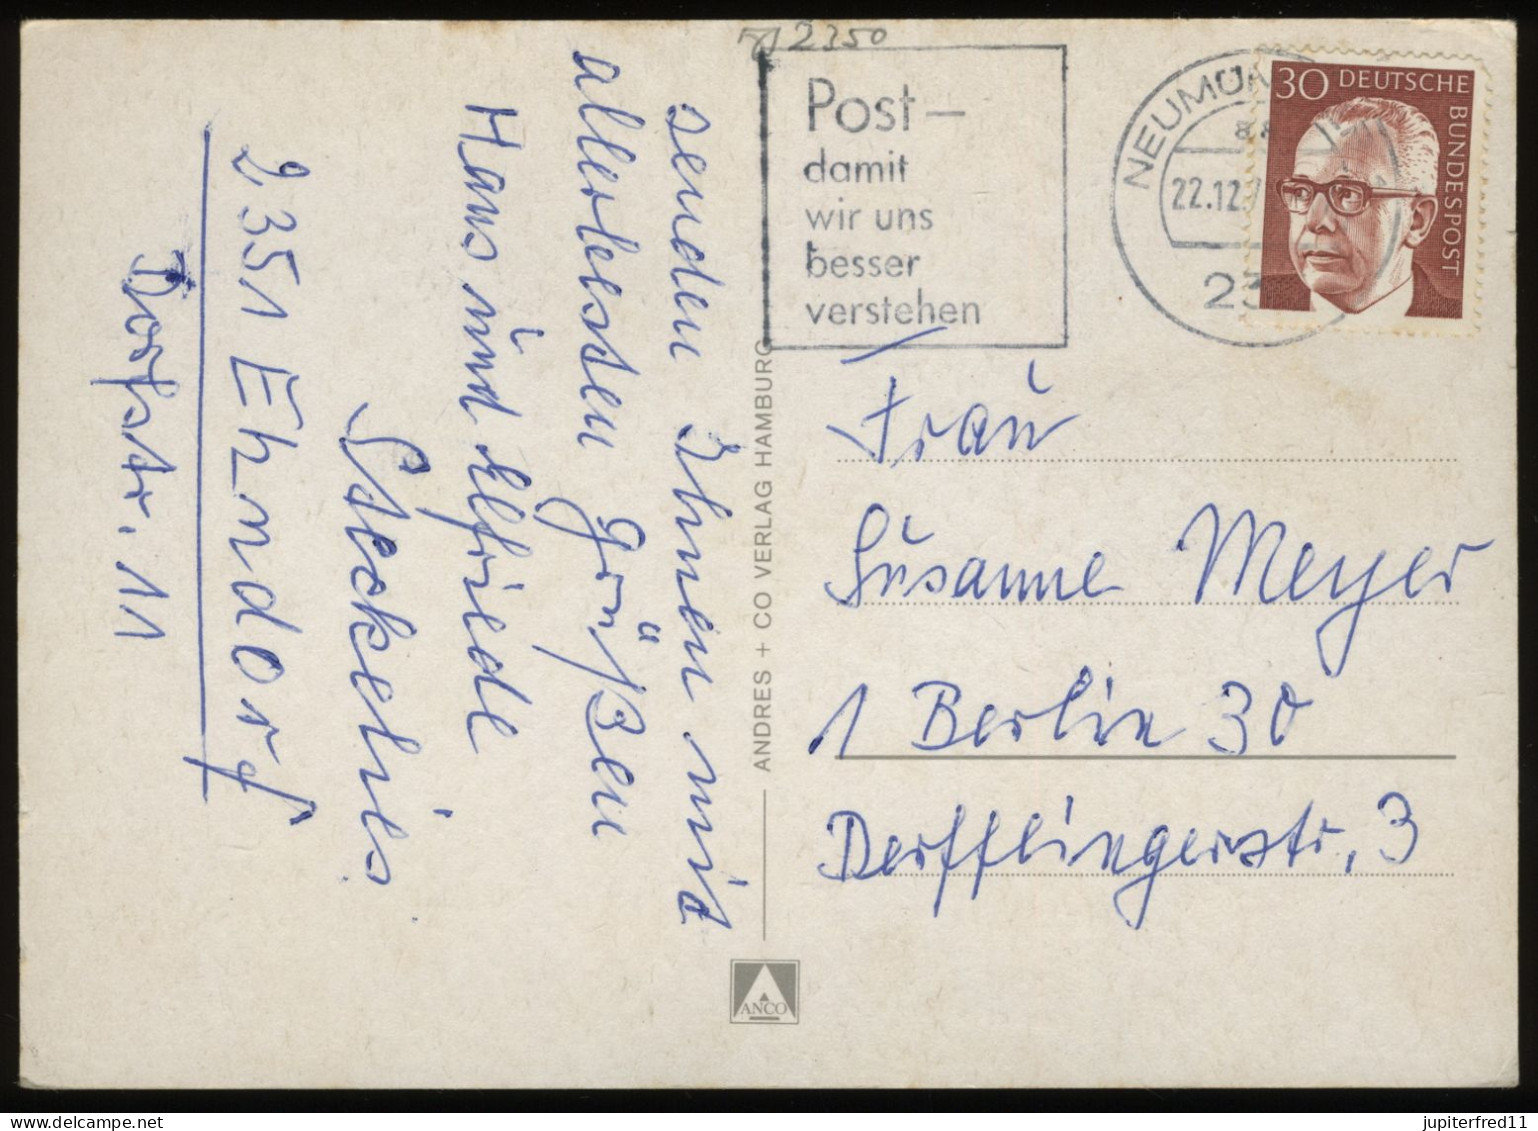 2350
Post –
damit
wir uns
besser
verstehen
NEUMÜ
22.12.7
23
30 DEUTSCHE
BUNDESPOST
senden Ihnen mit
allerbesten Grüßen
Hans und Elfriede
2351 Ehndorf
Dorfstr. 11
ANDRES + CO VERLAG HAMBURG
ANCO
Frau
Susanne Meyer
1 Berlin 30
Derfflingerstr. 3
jupiterfred11